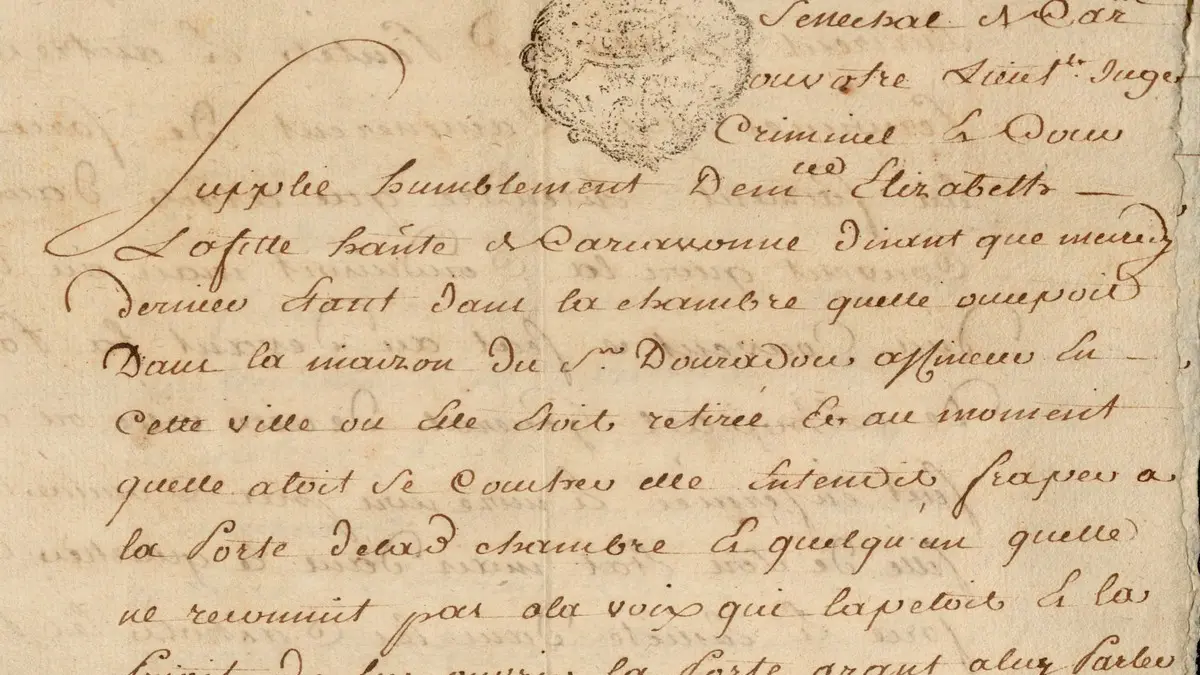 Senechal & Car
ouvotre Lieut.te Juge
Criminel Et Dou
Supplie humblement Dem.lle Elizabeth
Lafitte hãnte & Carcassonne Disant que mercredy
dernier Etant dans la chambre quelle occupoit
Dans la maizon du S.r Douradou affineur En
Cette ville ou Elle Etoit retirée Et au moment
quelle aloit se Coucher elle Entendit fraper a
la Porte delad chambre Et quelqu'un quelle
ne reconnut pas ala voix qui lapeloit Et la
Prioit de luy ouvrir la Porte ayant aluy Parler